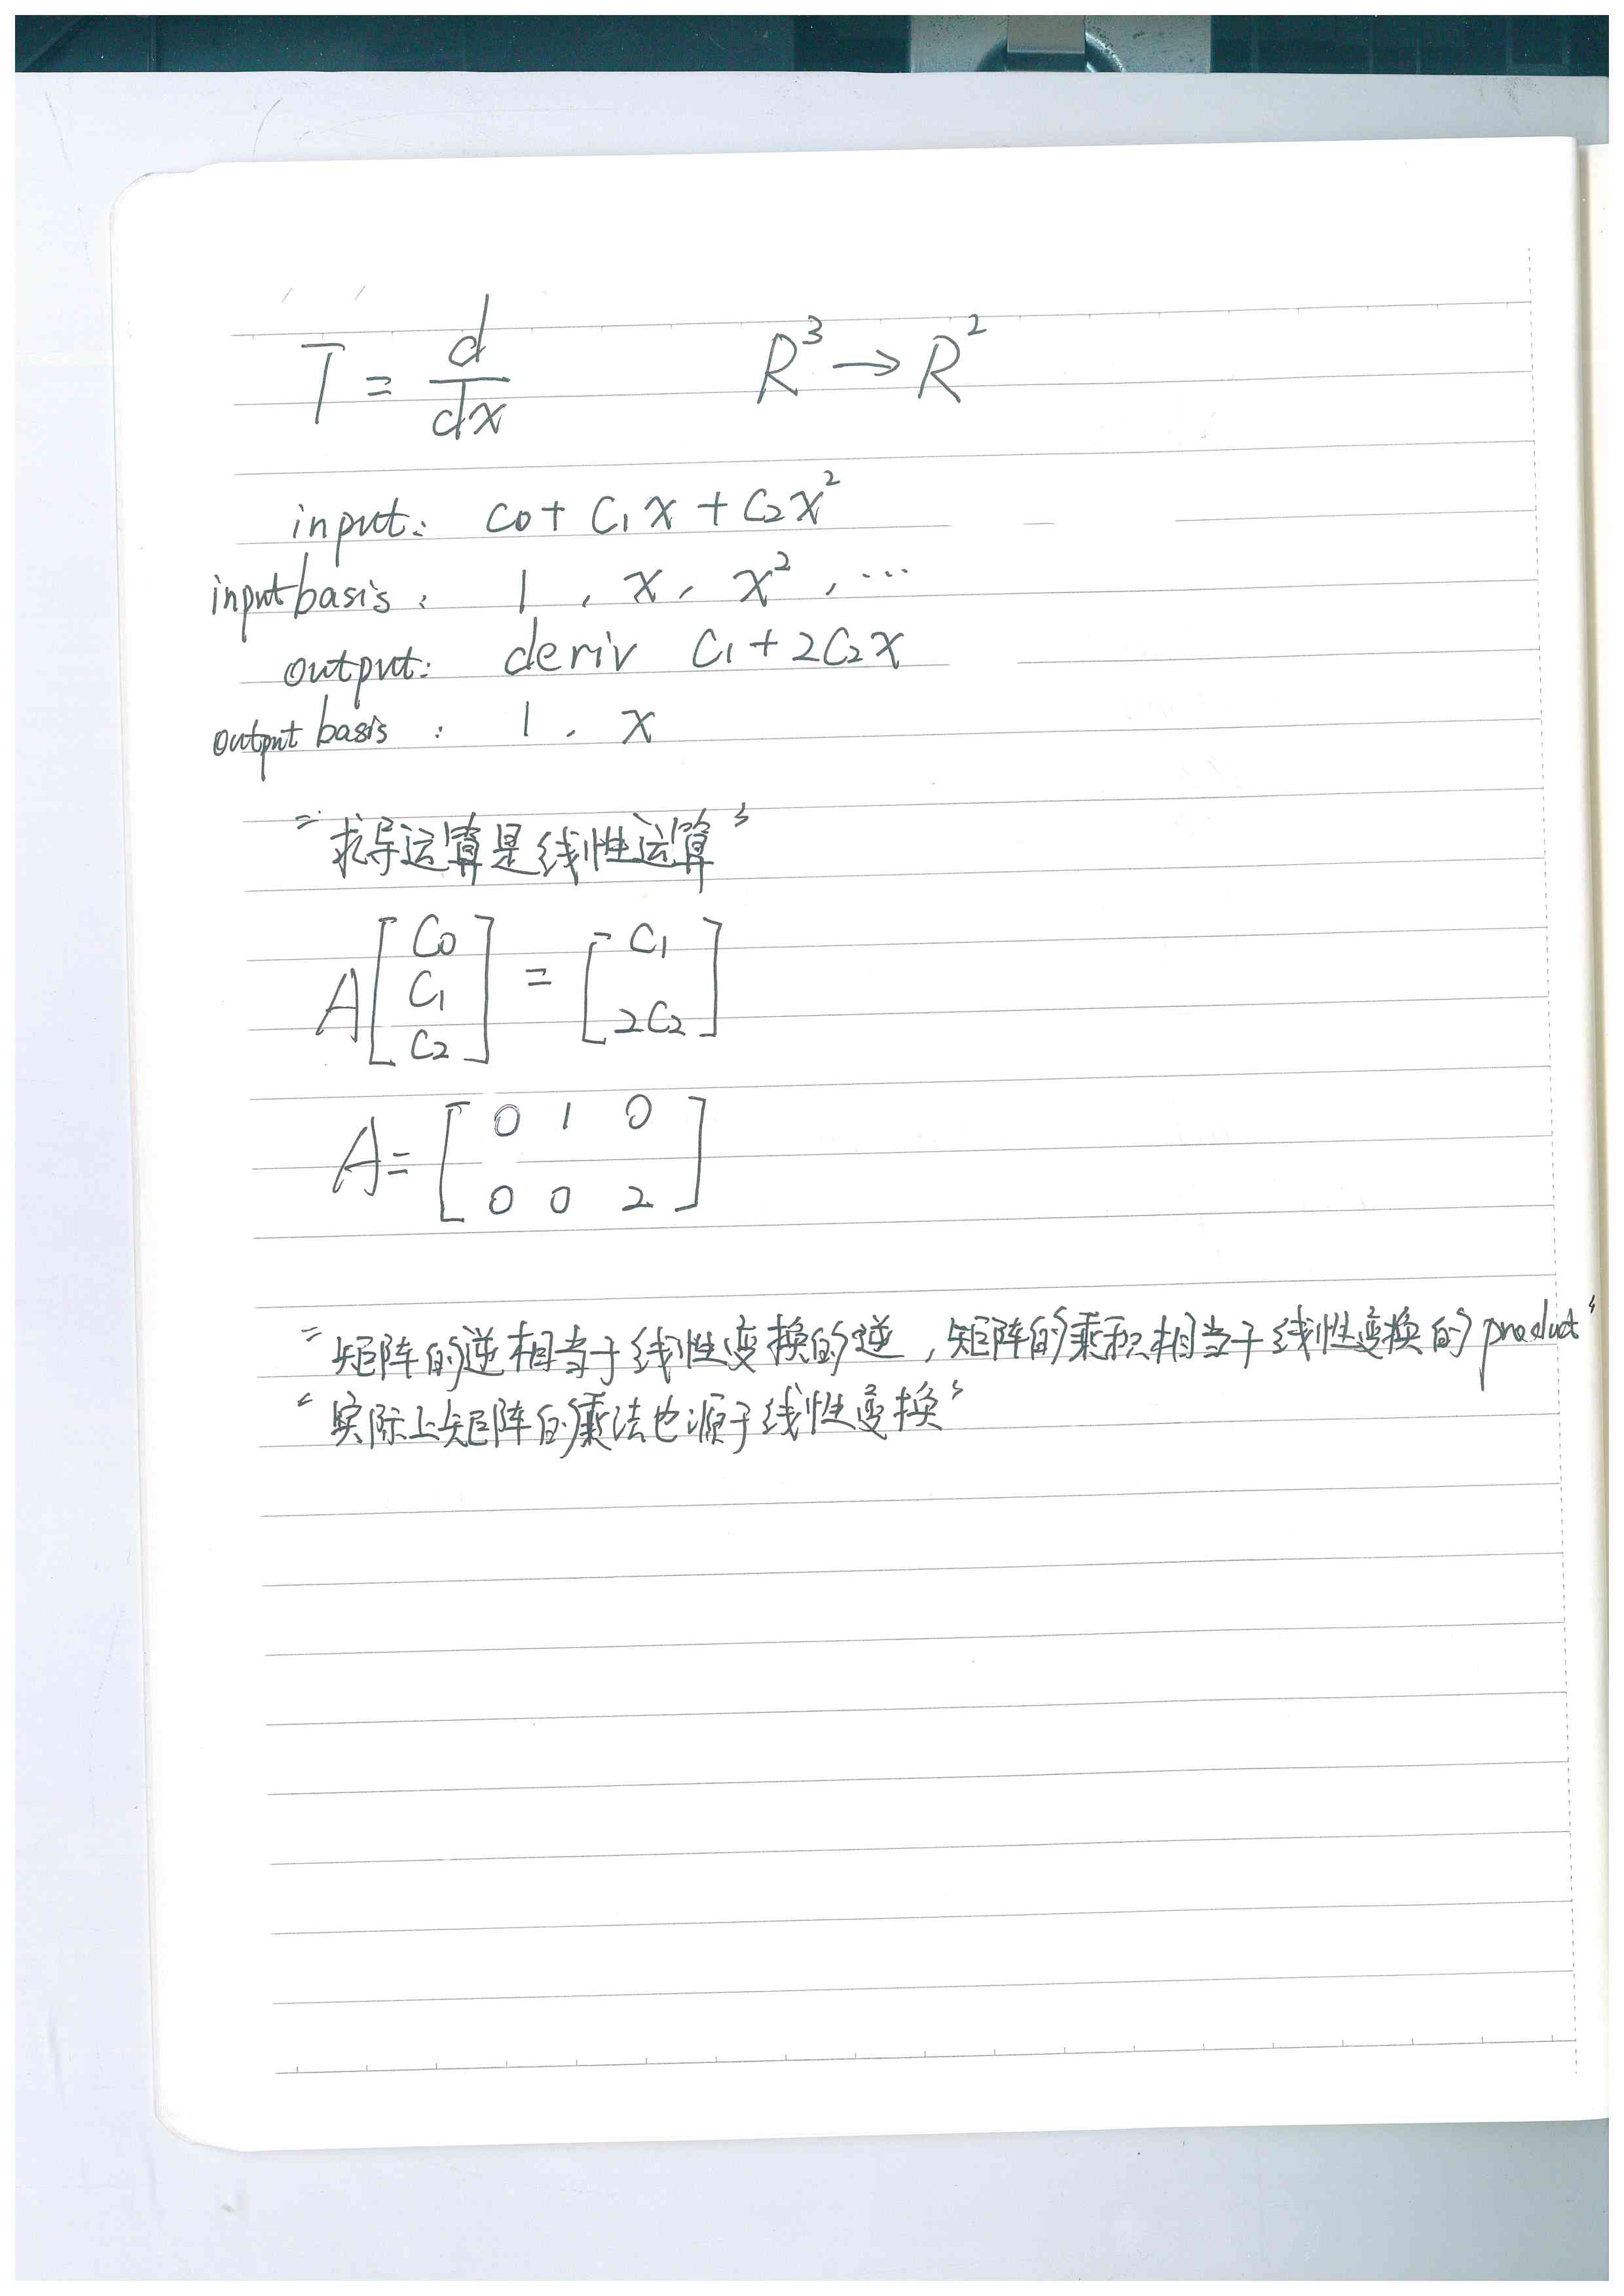 T = d/dx R³ → R²
input: C₀ + C₁x + C₂x²
input basis: 1, x, x², ...
output: deriv C₁ + 2C₂x
output basis: 1, x
"求导运算是线性运算"
A [C₀ C₁ C₂] = [C₁ 2C₂]
A = [0 1 0
0 0 2]
"矩阵的逆相当于线性变换的逆,矩阵的乘积相当于线性变换的product"
"实际上矩阵的乘法也源于线性变换"